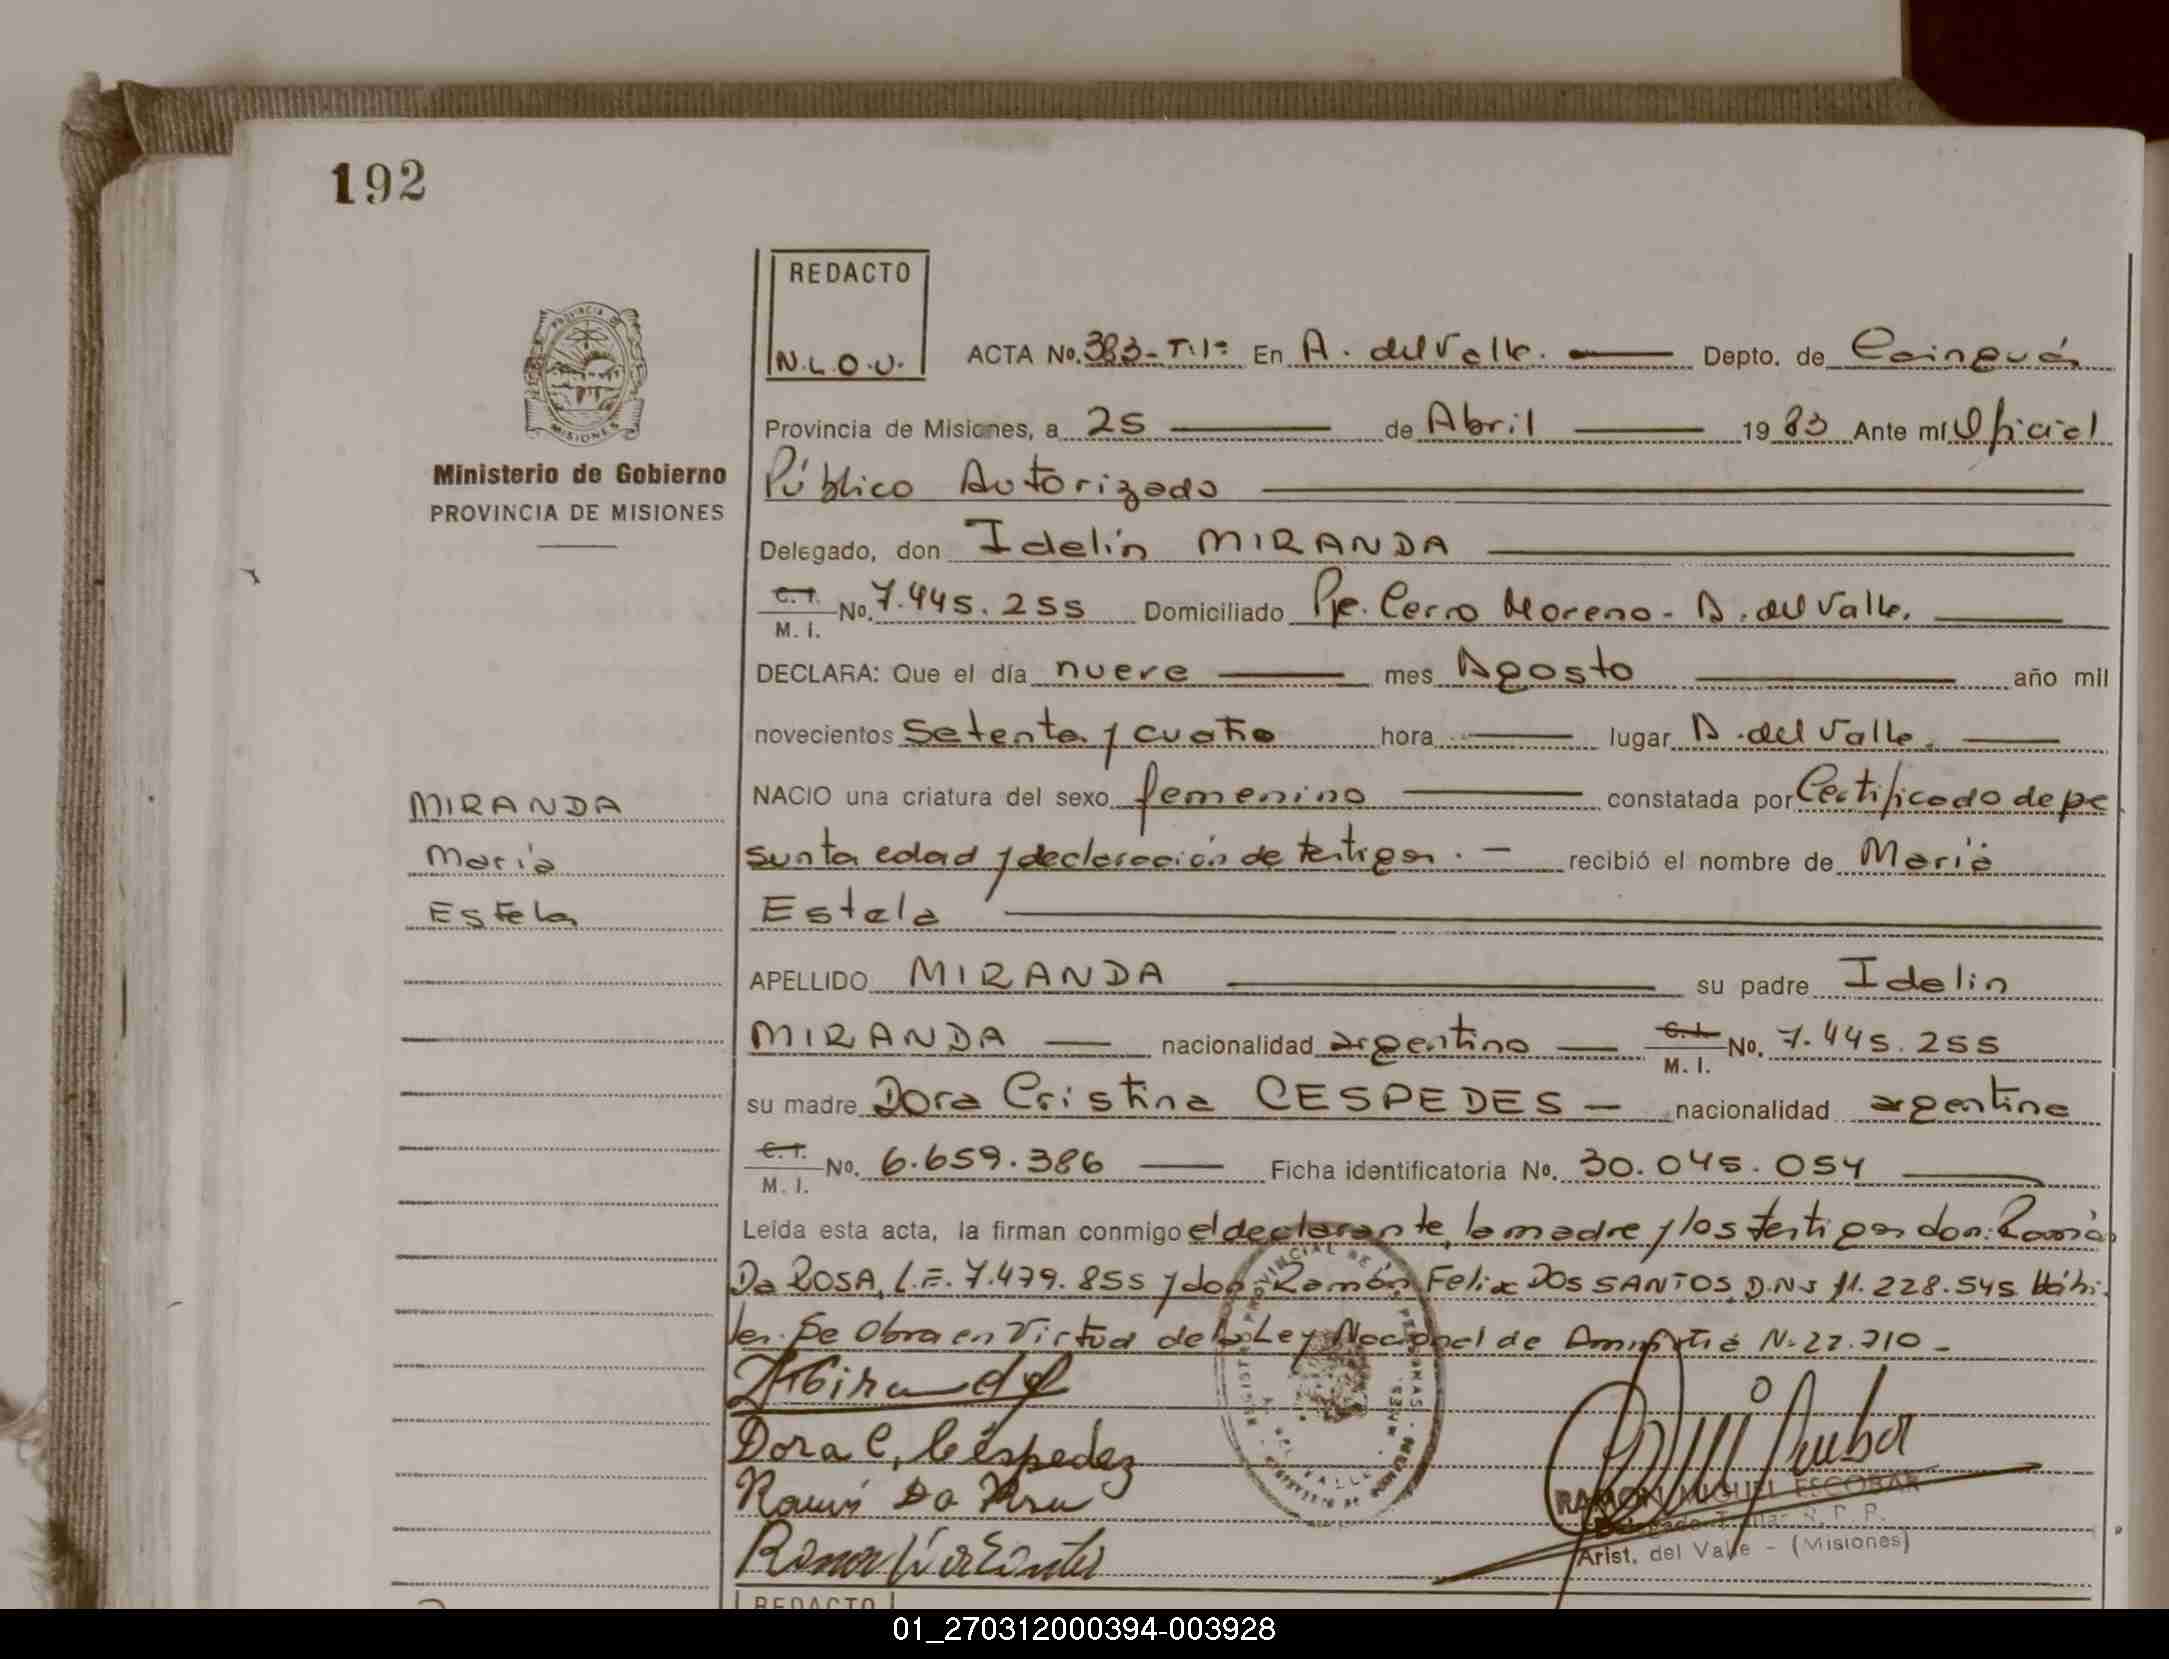 192
REDACTO
N.L.O.U.
ACTA No. 383-T.1º En A. del Valle. Depto. de Cainguás
Provincia de Misiones, a 25 de Abril 1983 Ante mí Oficial
Público Autorizado
Delegado, don Idelin MIRANDA
C. I. M. I. No. 7.445.255 Domiciliado Pje. Cerro Moreno - A. del Valle.
DECLARA: Que el día nueve mes Agosto año mil
novecientos setenta y cuatro hora lugar A. del Valle.
NACIO una criatura del sexo femenino constatada por Certificado de pre
sunta edad y declaración de testigos. recibió el nombre de María
Estela
APELLIDO MIRANDA su padre Idelin
MIRANDA nacionalidad argentino C. I. M. I. No. 7.445.255
su madre Dora Cristina CESPEDES nacionalidad argentina
C. I. M. I. No. 6.659.386 Ficha identificatoria No. 30.045.054
Leída esta acta, la firman conmigo el declarante, la madre y los testigos don:
Da ROSA, L.E. 7.479.855 y don Ramón Felix DOS SANTOS D.N.I 11.228.545 Hábi-
les. Se Obra en Virtud de la Ley Nacional de Amnistía N. 22.710 -
PROVINCIA DE
MISIONES
Ministerio de Gobierno
PROVINCIA DE MISIONES
MIRANDA
María
Estela
Dora C. Céspedez
RAMON MIGUEL ESCOBAR
Delegado Titular R. P. P.
Arist. del Valle - (Misiones)
REDACTO
01_270312000394-003928